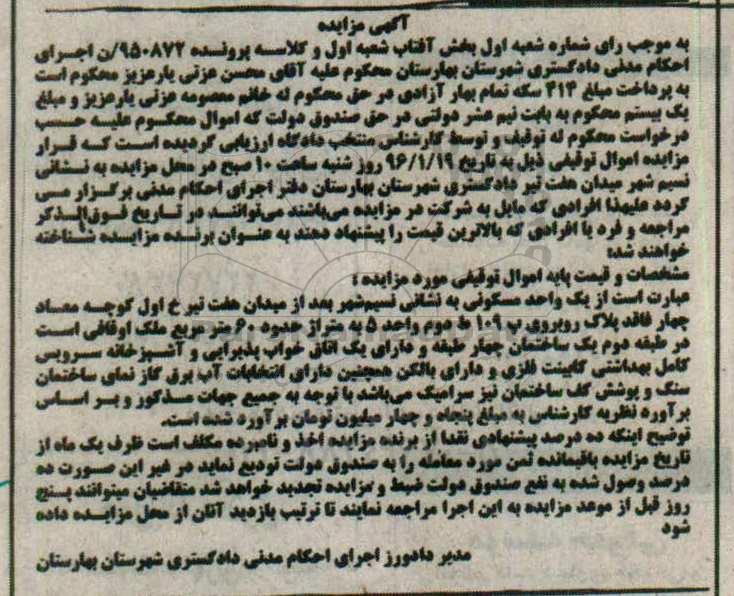 آگهی مزایده
به موجب رای شماره شعبه اول بخش آفتاب شعبه اول و کلاسه پرونده ۹۵۰۸۷۲/ن اجرای
احکام مدنی دادگستری شهرستان بهارستان محکوم علیه آقای محسن عزتی یارعزیز محکوم است
به پرداخت مبلغ ۴۱۴ سکه تمام بهار آزادی در حق محکوم له خانم معصومه عزتی یارعزیز و مبلغ
یک بیستم محکوم به بابت نیم عشر دولتی در حق صندوق دولت که اموال محکوم علیه حسب
درخواست محکوم له توقیف و توسط کارشناس منتخب دادگاه ارزیابی گردیده است که قرار
مزایده اموال توقیفی ذیل به تاریخ ۹۶/۱/۱۹ روز شنبه ساعت ۱۰ صبح در محل مزایده به نشانی
نسیم شهر میدان هفت تیر دادگستری شهرستان بهارستان دفتر اجرای احکام مدنی برگزار می
گردد علیهذا افرادی که مایل به شرکت در مزایده می‌باشند می‌توانند در تاریخ فوق‌الذکر
مراجعه و فرد یا افرادی که بالاترین قیمت را پیشنهاد دهند به عنوان برنده مزایده شناخته
خواهند شد:
مشخصات و قیمت پایه اموال توقیفی مورد مزایده :
عبارت است از یک واحد مسکونی به نشانی نسیم‌شهر بعد از میدان هفت تیر خ اول کوچه معاد
چهار فاقد پلاک روبروی پ ۱۰۹ ط دوم واحد ۵ به متراژ حدود ۶۰ متر مربع ملک اوقافی است
در طبقه دوم یک ساختمان چهار طبقه و دارای یک اتاق خواب پذیرایی و آشپزخانه سرویس
کامل بهداشتی کابینت فلزی و دارای بالکن همچنین دارای انتخابات آب برق گاز نمای ساختمان
سنگ و پوشش کف ساختمان نیز سرامیک می‌باشد با توجه به جمیع جهات مذکور و بر اساس
برآورد نظریه کارشناس به مبلغ پنجاه و چهار میلیون تومان برآورد شده است.
توضیح اینکه ده درصد پیشنهادی نقدا از برنده مزایده اخذ و نامبرده مکلف است ظرف یک ماه از
تاریخ مزایده باقیمانده ثمن مورد معامله را به صندوق دولت تودیع نماید در غیر این صورت ده
درصد وصول شده به نفع صندوق دولت ضبط و مزایده تجدید خواهد شد متقاضیان میتوانند پنج
روز قبل از موعد مزایده به این اجرا مراجعه نمایند تا ترتیب بازدید آنان از محل مزایده داده
شود
مدیر دادورز اجرای احکام مدنی دادگستری شهرستان بهارستان